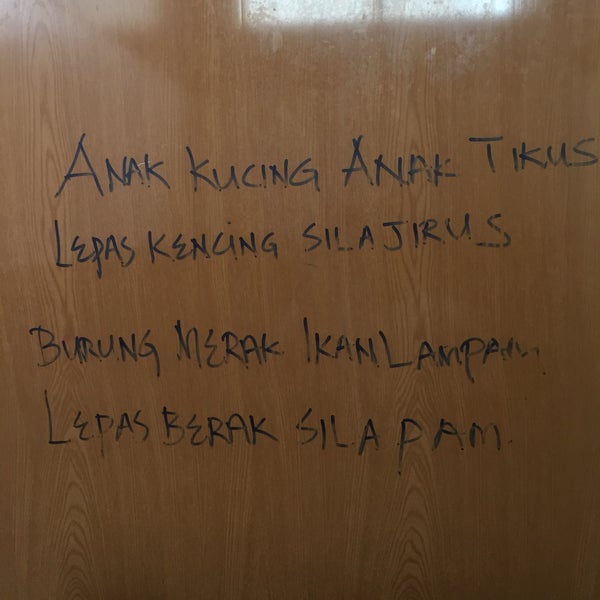 ANAK KUCING ANAK TIKUS
LEPAS KENCING SILA JIRUS
BURUNG MERAK IKAN LAMPAM
LEPAS BERAK SILA PAM